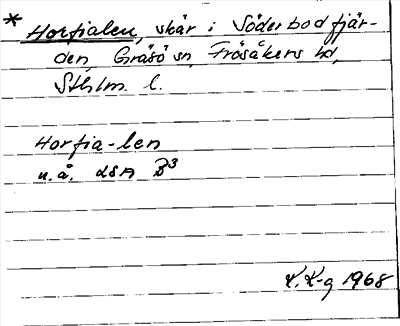 * Horfialen, skär i Söderbodfjär-
den, Gräsö sn, Frösåkers hd,
Sthlm. l.
Horfia-len
u.å. LSA B³
K. K-g 1968